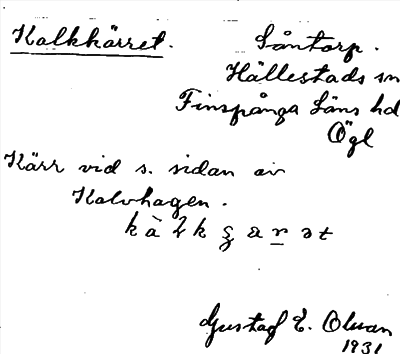 Kalkkärret.
Såntorp.
Hällestads sn
Finspånga Läns hd
Ögl
Kärr vid s. sidan av
Kalvhagen.
Gustaf E. Olsson
1931